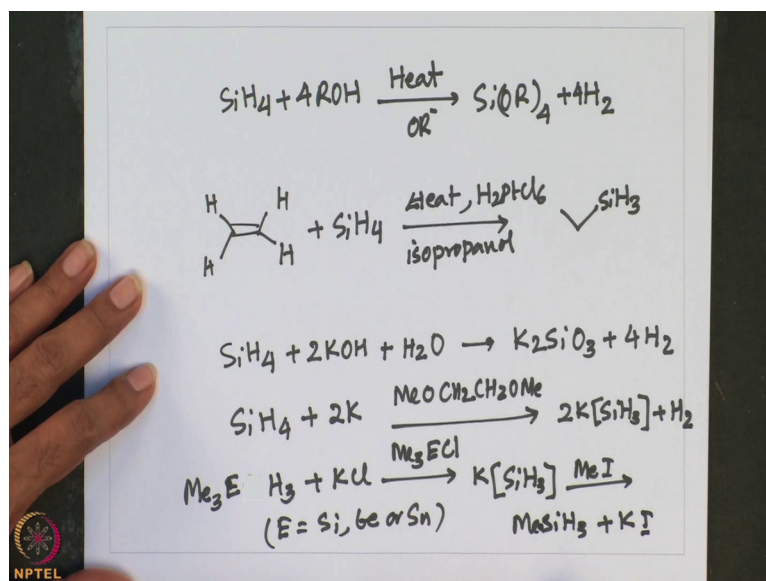 SiH4 + 4ROH Heat OR⁻ → Si(OR)4 + 4H2
H H H H + SiH4 Heat, H2PtCl6 isopropanol → SiH3
SiH4 + 2KOH + H2O → K2SiO3 + 4H2
SiH4 + 2K MeOCH2CH2OMe → 2K[SiH3] + H2
Me3E H3 + KCl Me3ECl → K[SiH3] MeI →
(E = Si, Ge or Sn) MeSiH3 + KI
NPTEL